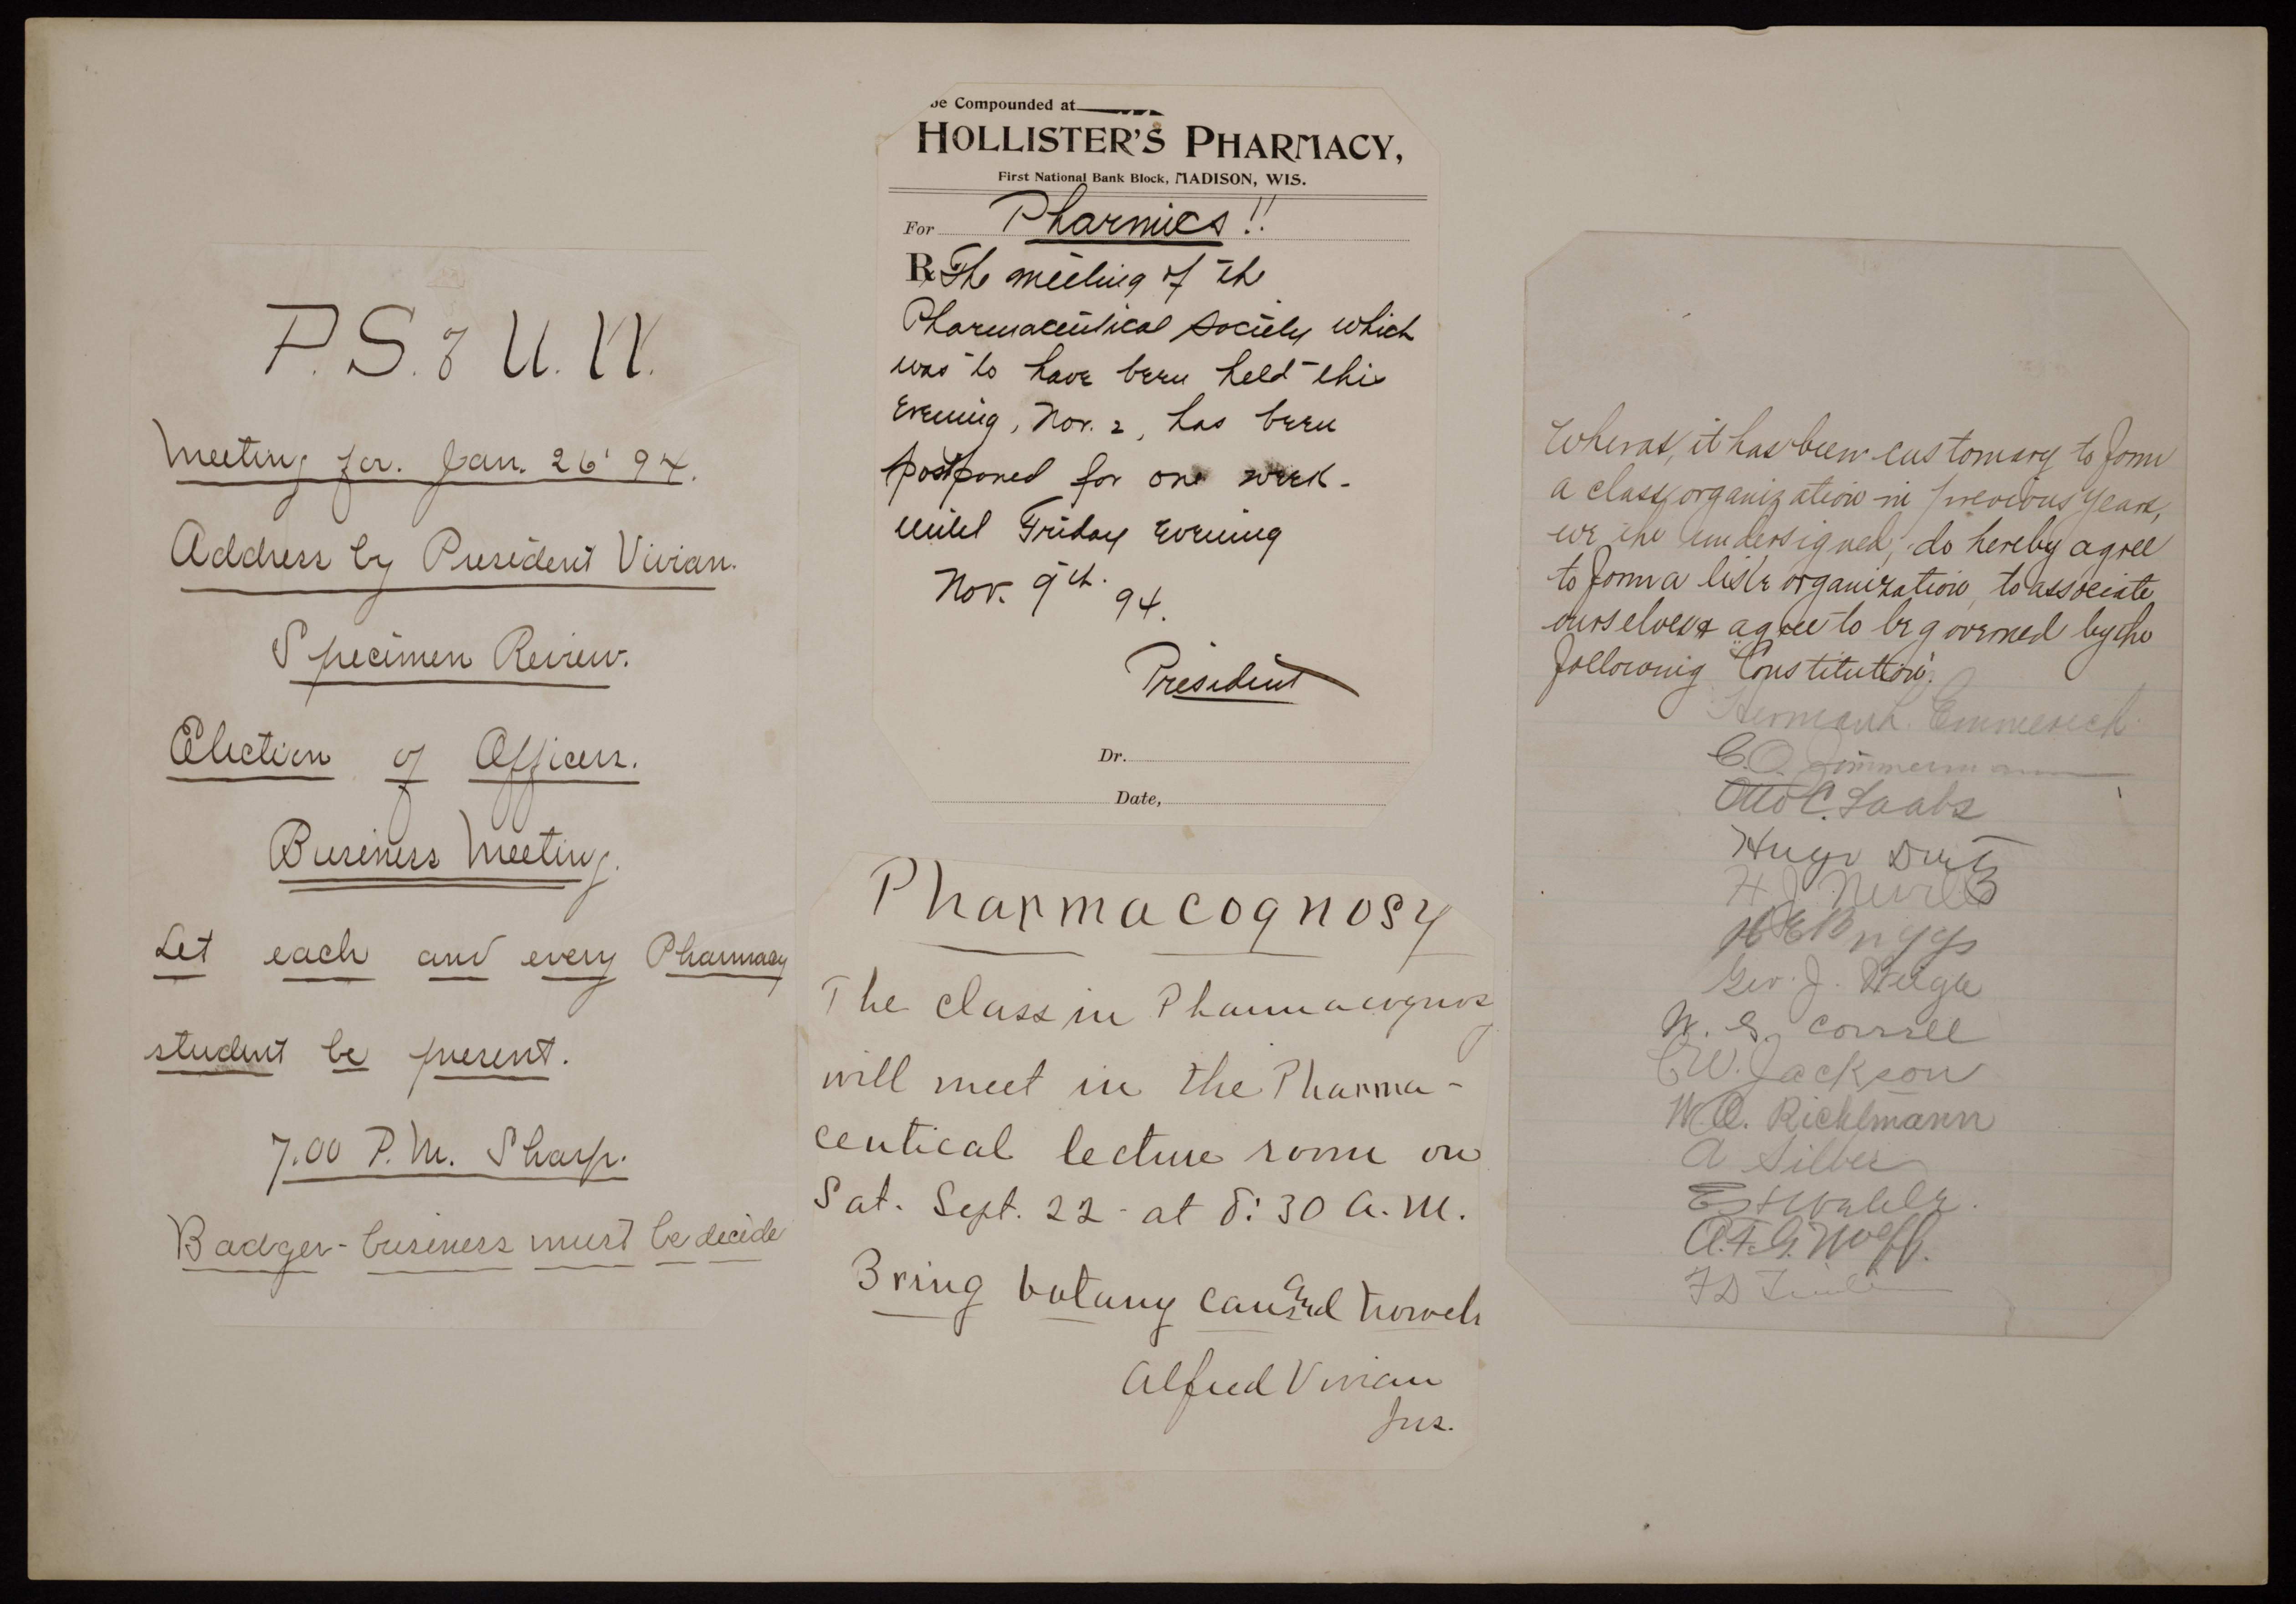 P. S. of U. W.
Meeting for. Jan. 26' 94.
Address by President Vivian.
Specimen Review.
Election of Officers.
Business Meeting.
Let each and every Pharmacy
student be present.
7.00 P.M. Sharp.
Badger-business must be decide
be Compounded at
HOLLISTER'S PHARMACY,
First National Bank Block, MADISON, WIS.
For Pharmics!!
R The meeting of the
Pharmaceutical Society which
was to have been held this
Evening, Nov. 2, has been
postponed for one week-
until Friday Evening
Nov. 9th. 94.
President
Dr.
Date,
Pharmacognosy
The class in Pharmacognosy
will meet in the Pharma-
ceutical lecture room on
Sat. Sept. 22 - at 8:30 A.M.
Bring botany cans and trowels
Alfred Vivian
Ins.
Wheras, it has been customary to form
a class organization in previous years,
we the undersigned, do hereby agree
to form a like organization, to associate
ourselves & agree to be governed by the
following "Constitution".
Herman Emmerich
C. O. Zimmermann
Otto C. Laabs
Hugo
H. J.
Briggs
Geo. J. Weigle
W. S.
C W. Jackson
W. O. Richtmann
A Silber
A. F. G. Wolff.
F D